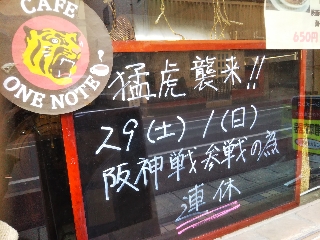 CAFE
ONE NOTE
猛虎襲来!!
29(土) 1(日)
阪神戦参戦の為
連休
650円